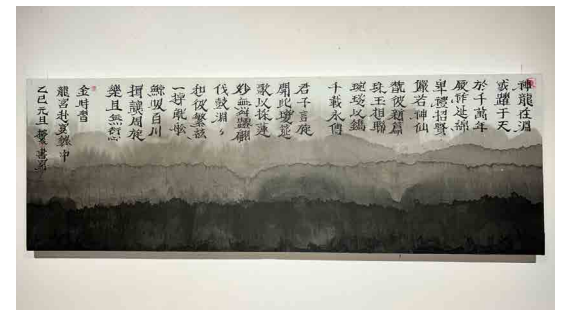 神龍在淵
或躍于天
於千萬年
厥作
卑禮招賢
儼若神仙
彼 篇
珠玉相聯
琬琰以鐫
千載永傳
君子言旋
開此瓊筵
歌以採蓮
妙舞
伐鼓淵〻
和彼繁絃
一
鯨吸百川
揖讓周旋
樂且無愆
金時習
龍宮赴宴錄 中
乙巳元旦